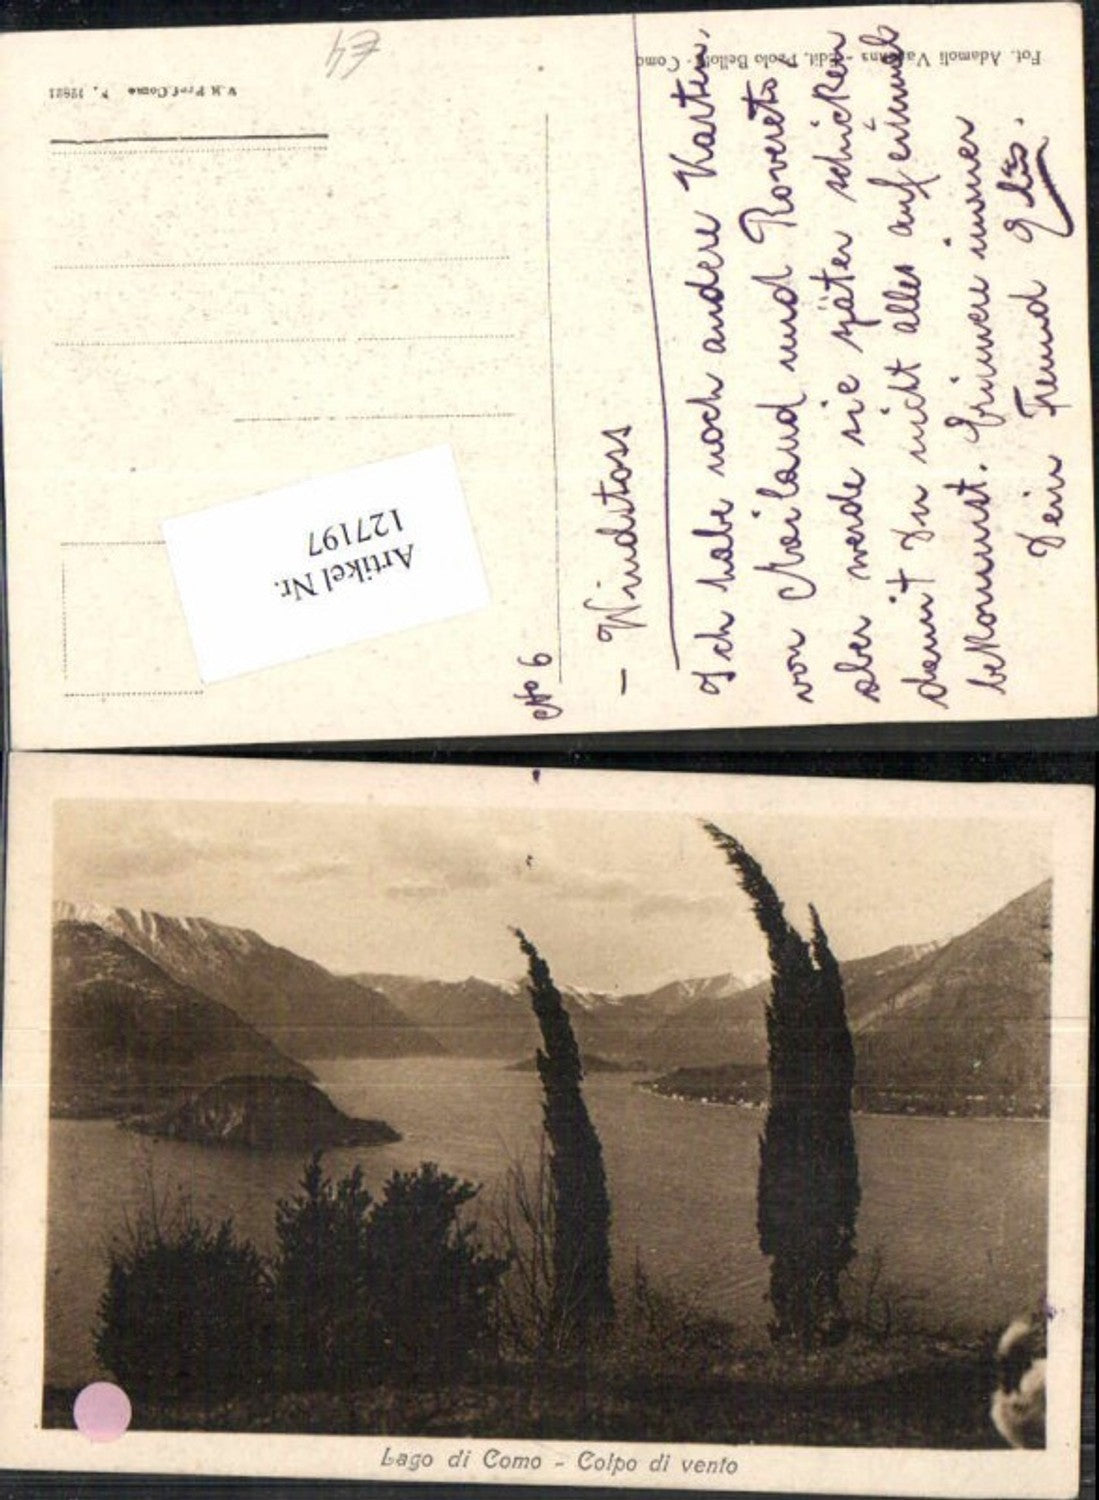 Fot. Adamoli Varenna - Edit. Paolo Bellotti - Como
V. R. Pref. Como P. 12821
£4
Artikel Nr.
127197
No 6
— Windstoss
Ich habe noch andere Karten,
von Mailand und Rovereto,
aber werde sie später schicken
damit Du nicht alles auf einmal
bekommst. Erinnere immer
Dein Freund
Lago di Como - Colpo di vento